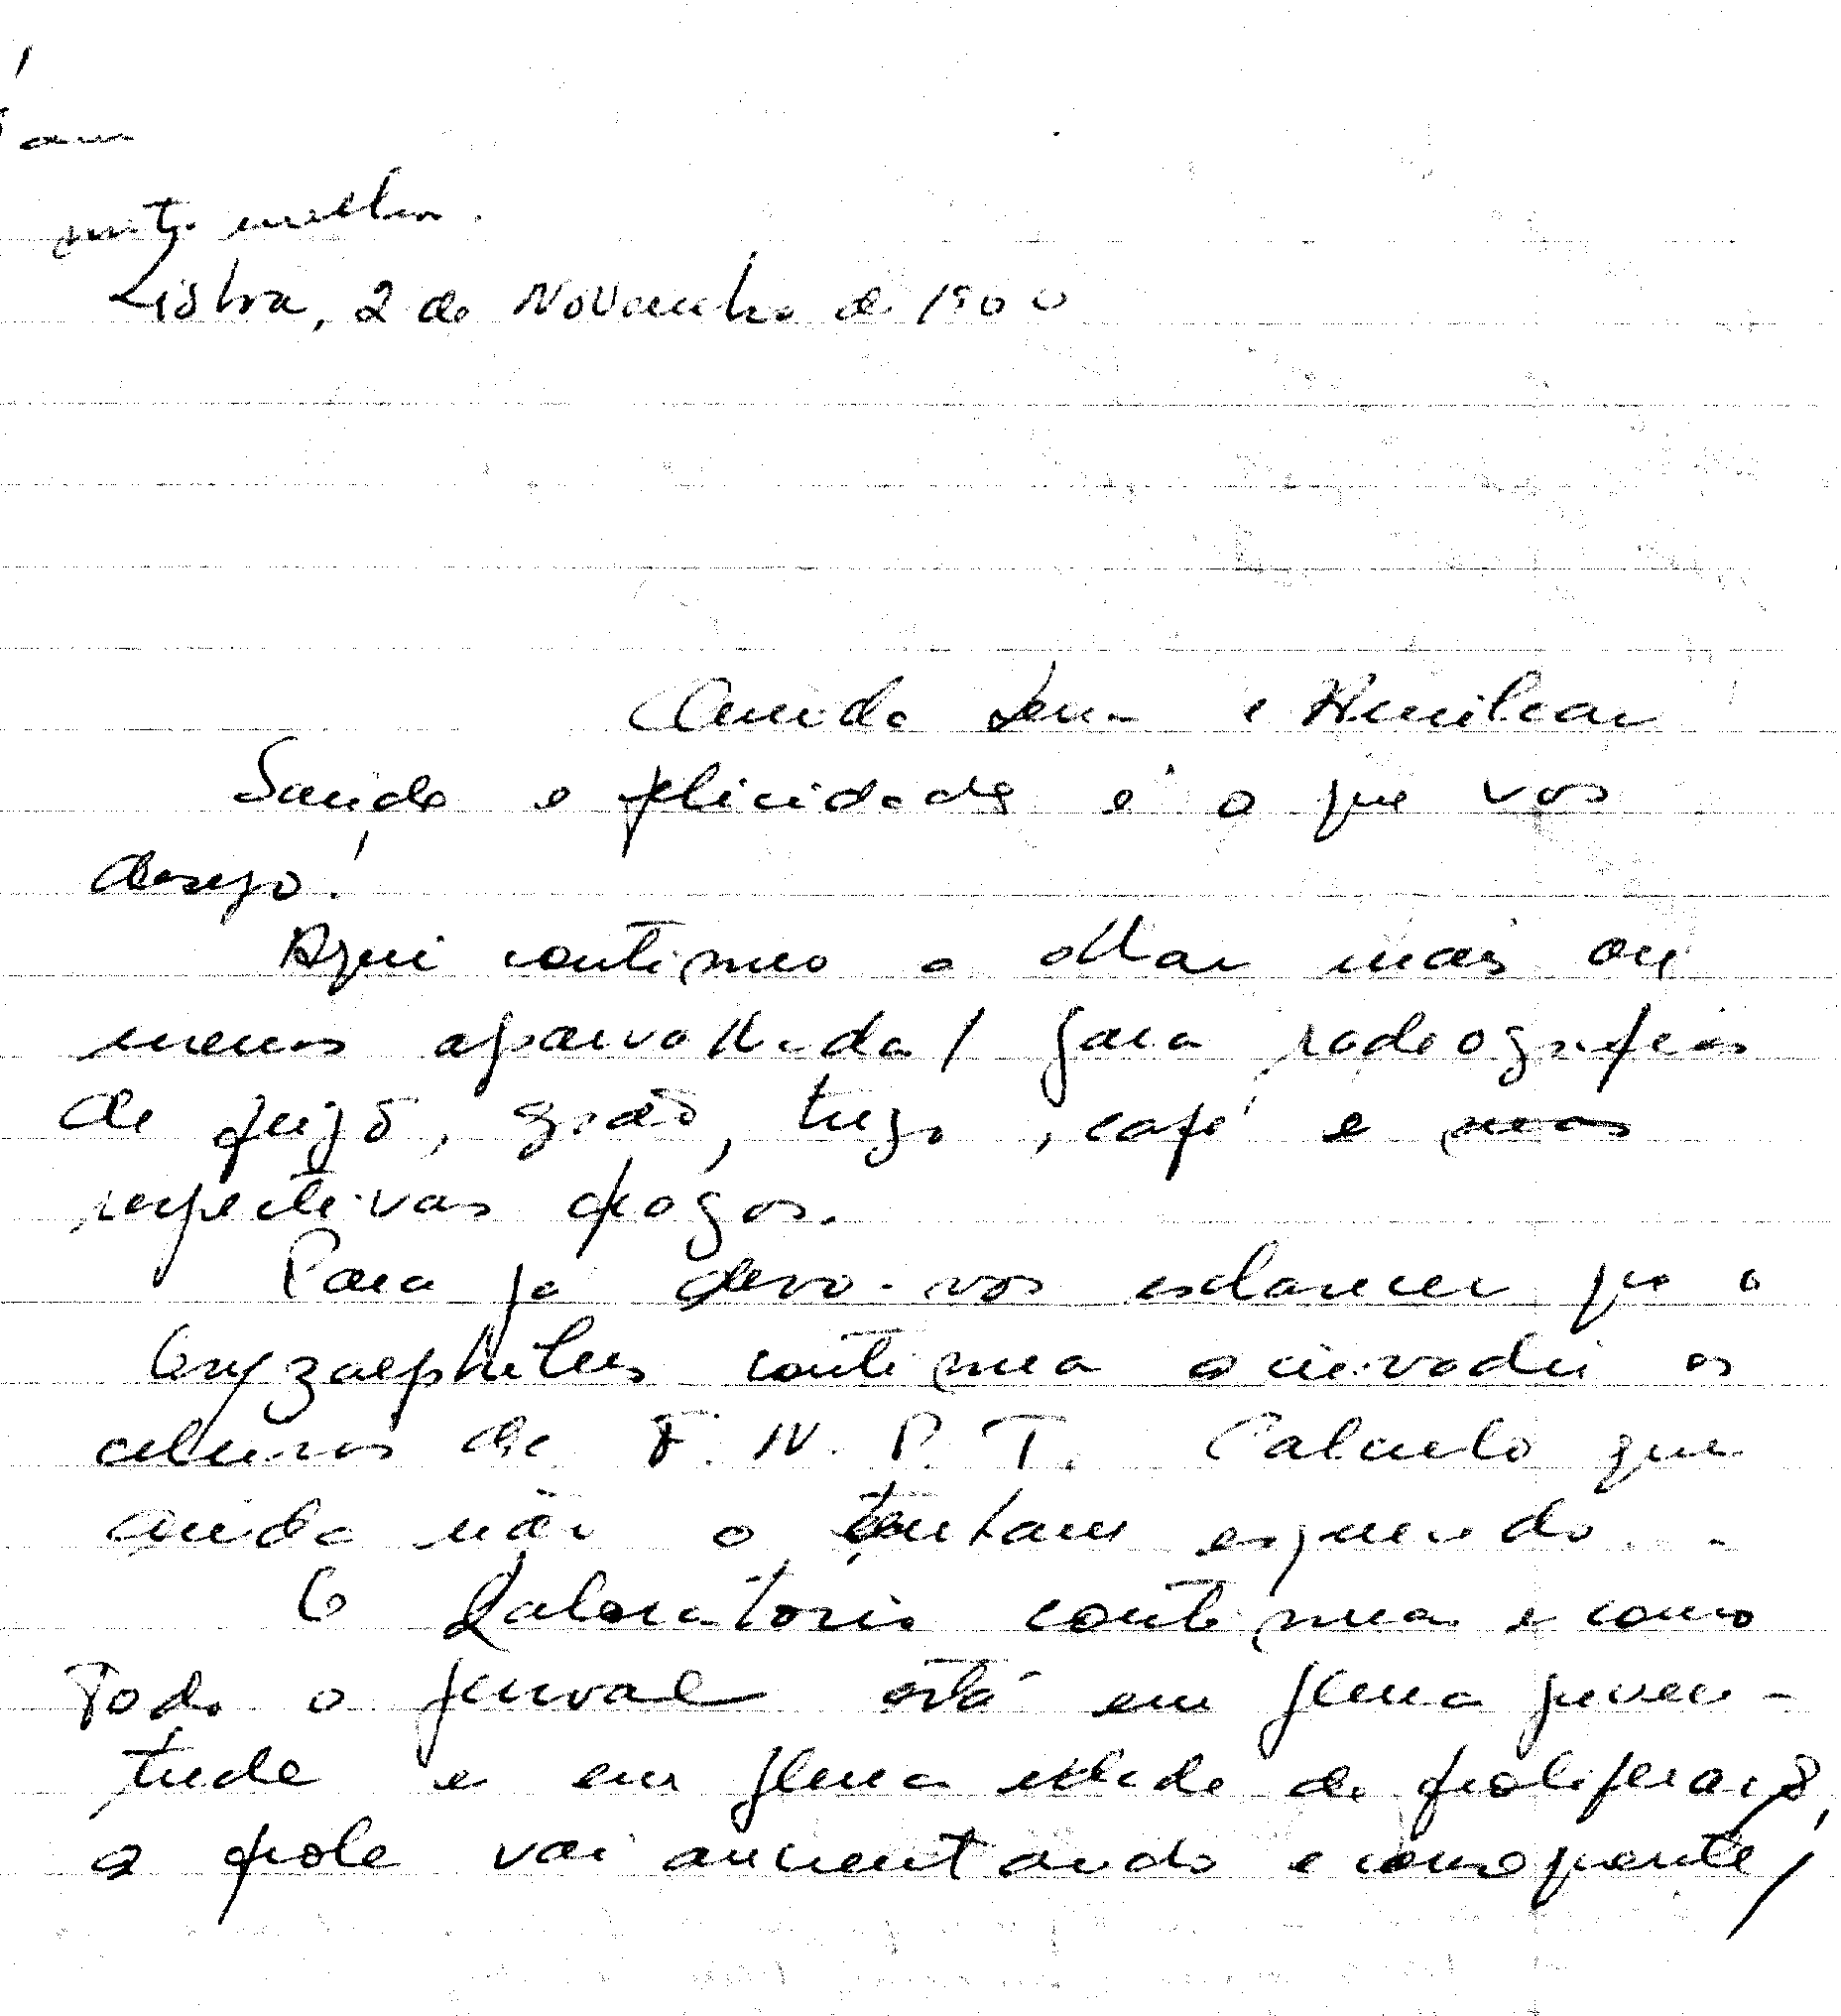 muito melhor.
Lisboa, 2 de Novembro de 1960
Querida Lena e Amilcar
Saúde e felicidade é o que vos
desejo!
Aqui continuo a olhar mais ou
menos aparvalhada/ para radiografias
de feijão, grão, trigo, café e suas
respectivas pragas.
Para já devo-vos esclarecer que o
Oryzaephilus continua a invadir os
celeiros da F. N. P. T. Calculo que
ainda não o tenham esquecido..
O Laboratório continua e como
todo o pessoal está em plena juven-
tude e em plena idade de proliferação,
a prole vai aumentando e consequente/